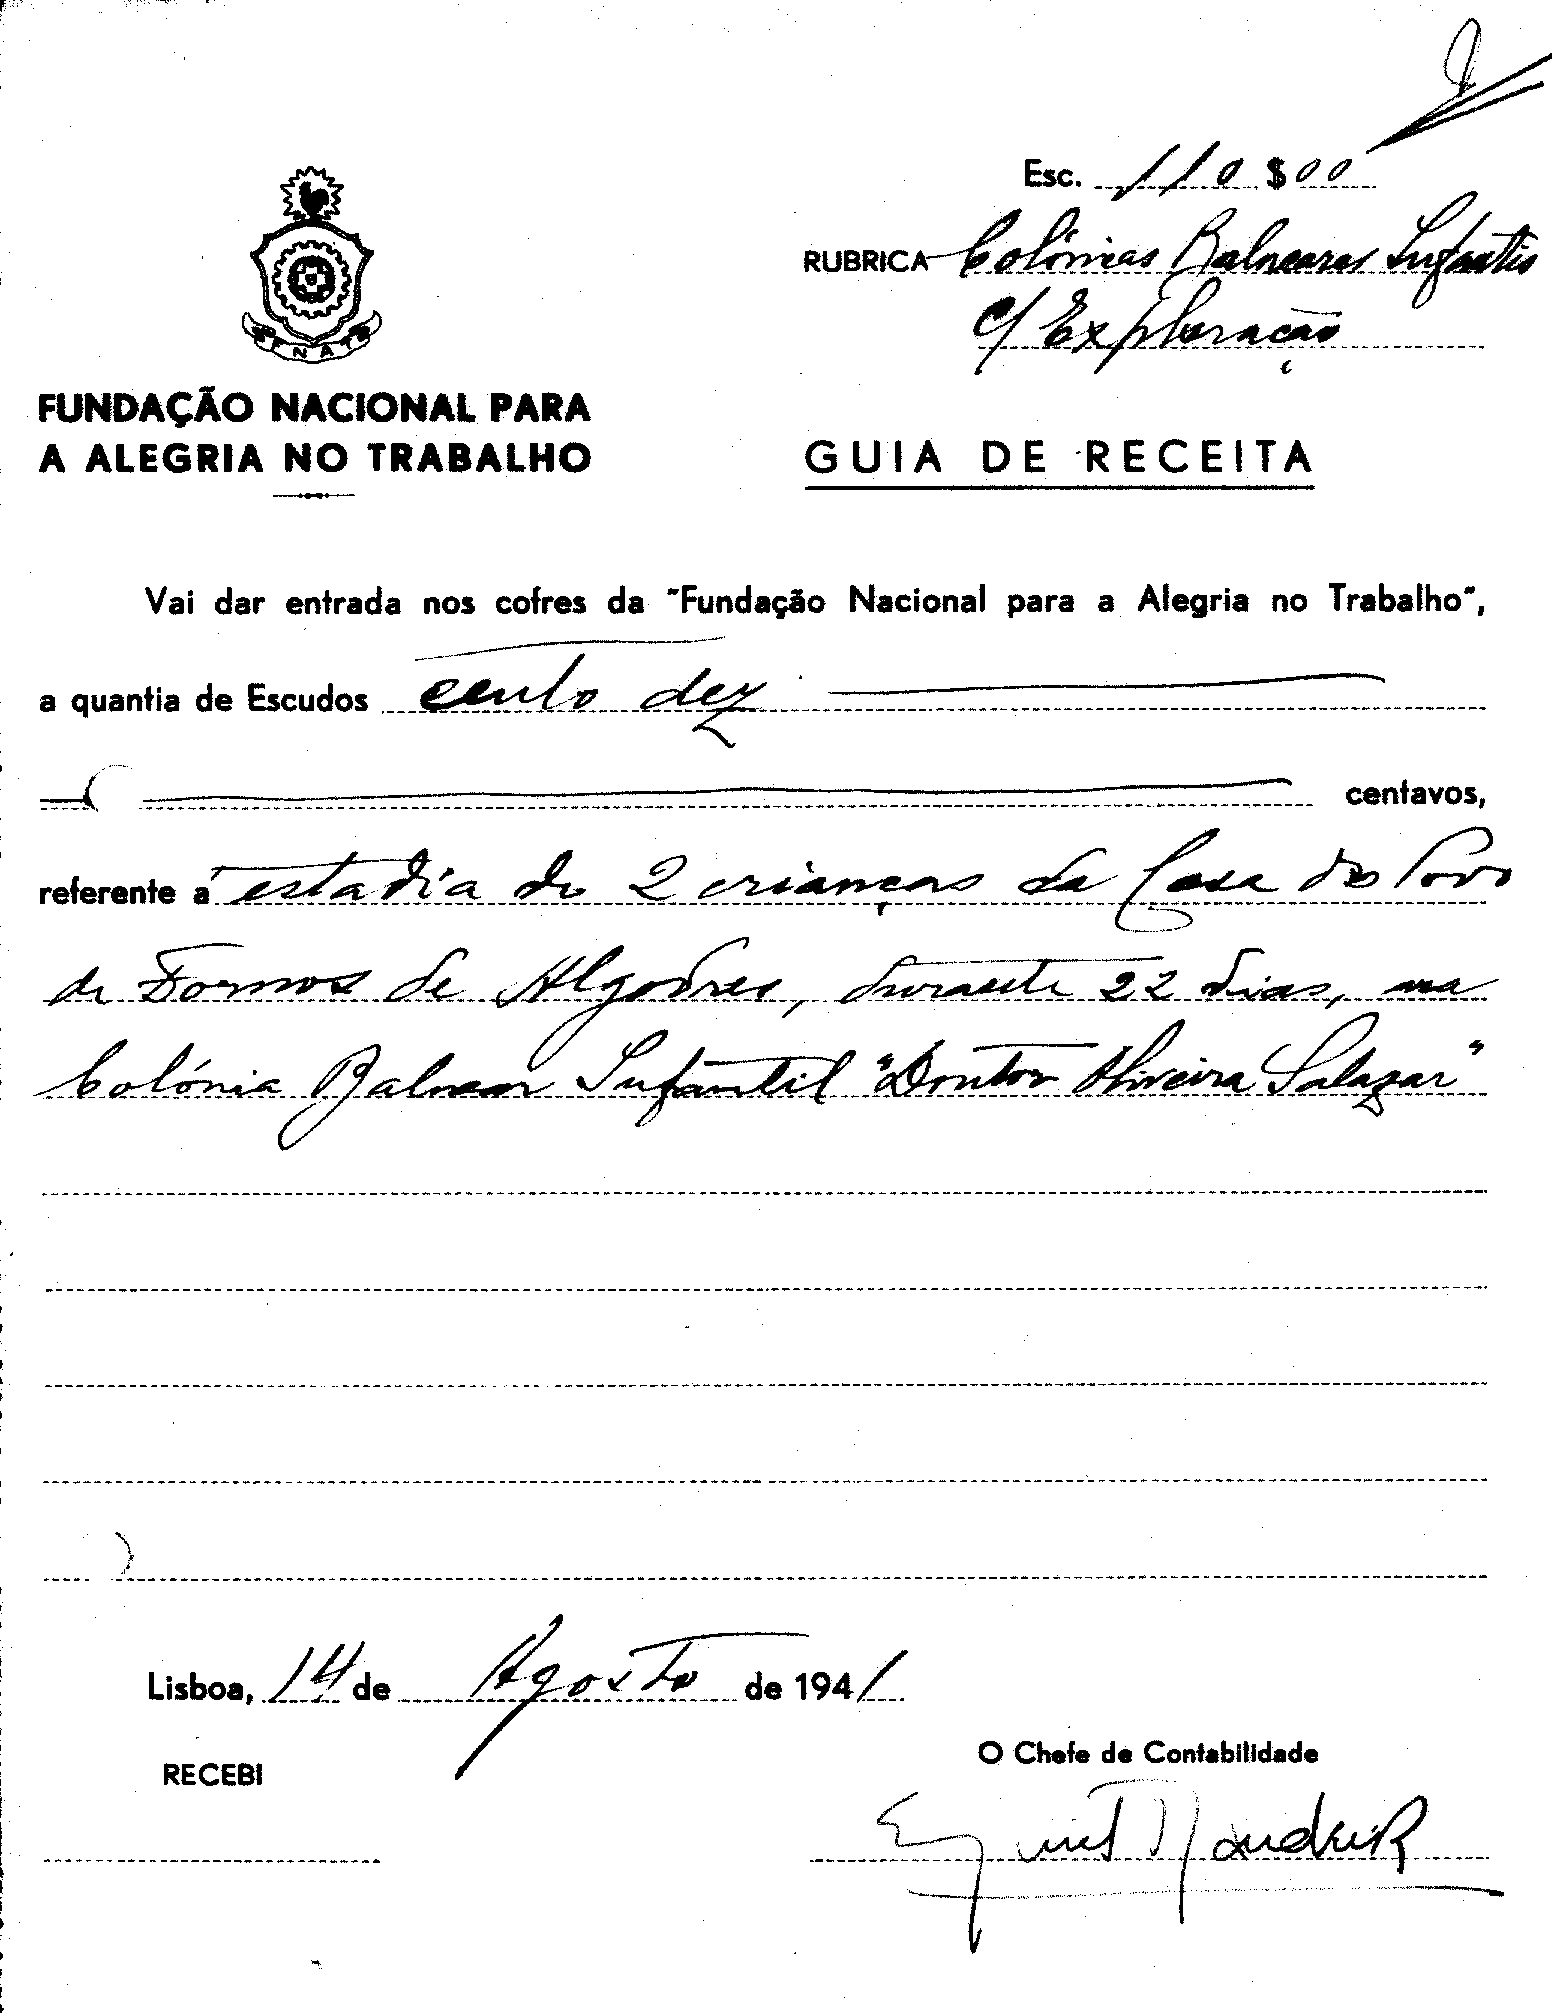 Esc. 110$00
RUBRICA Colónias Balneares Infantis
c/ Exploração
FNAT
FUNDAÇÃO NACIONAL PARA
A ALEGRIA NO TRABALHO
GUIA DE RECEITA
Vai dar entrada nos cofres da "Fundação Nacional para a Alegria no Trabalho",
a quantia de Escudos cento dez
centavos,
referente á estadia de 2 crianças da Casa do Povo
de Fornos de Algodres, durante 22 dias, na
Colónia Balnear Infantil "Doutor Oliveira Salazar"
Lisboa, 14 de Agosto de 1941
RECEBI
O Chefe de Contabilidade